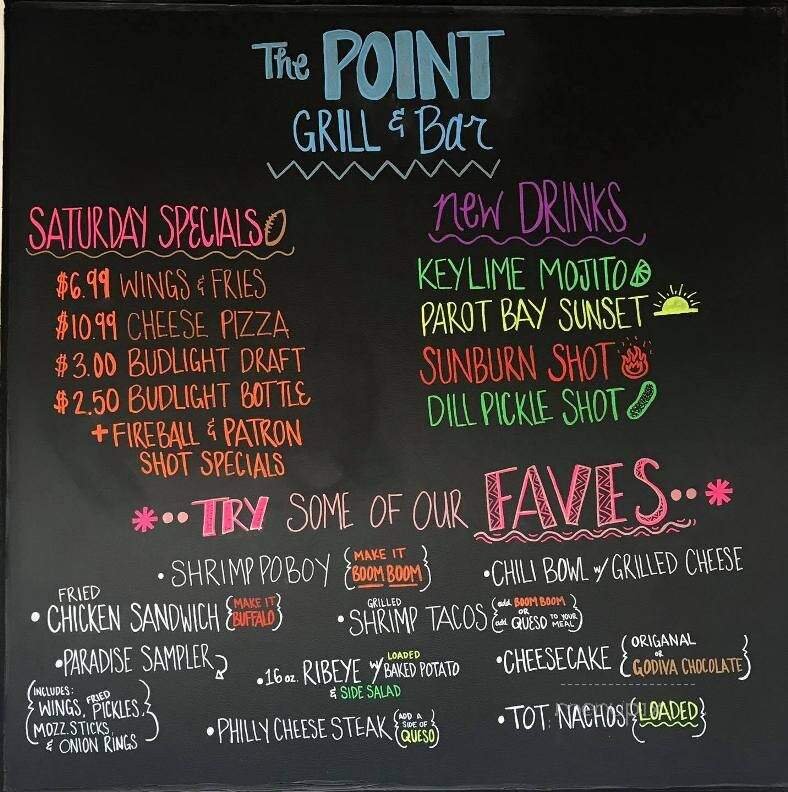 The POINT
GRILL & Bar
SATURDAY SPECIALS
$6.99 WINGS & FRIES
$10.99 CHEESE PIZZA
$3.00 BUDLIGHT DRAFT
$2.50 BUDLIGHT BOTTLE
+ FIREBALL & PATRON
SHOT SPECIALS
new DRINKS
KEYLIME MOJITO
PAROT BAY SUNSET
SUNBURN SHOT
DILL PICKLE SHOT
*•• TRY SOME OF OUR FAVES ••*
• SHRIMP POBOY {MAKE IT
BOOM BOOM}
• CHILI BOWL w/ GRILLED CHEESE
FRIED
• CHICKEN SANDWICH {MAKE IT
BUFFALO}
GRILLED
• SHRIMP TACOS {add BOOM BOOM
OR
add QUESO TO YOUR MEAL}
• PARADISE SAMPLER
{INCLUDES:
WINGS, FRIED PICKLES,
MOZZ. STICKS,
& ONION RINGS}
• 16 oz. RIBEYE w/ LOADED
BAKED POTATO
& SIDE SALAD
• CHEESECAKE {ORIGANAL
or
GODIVA CHOCOLATE}
• PHILLY CHEESE STEAK {ADD A
SIDE OF
QUESO}
• TOT NACHOS {LOADED}